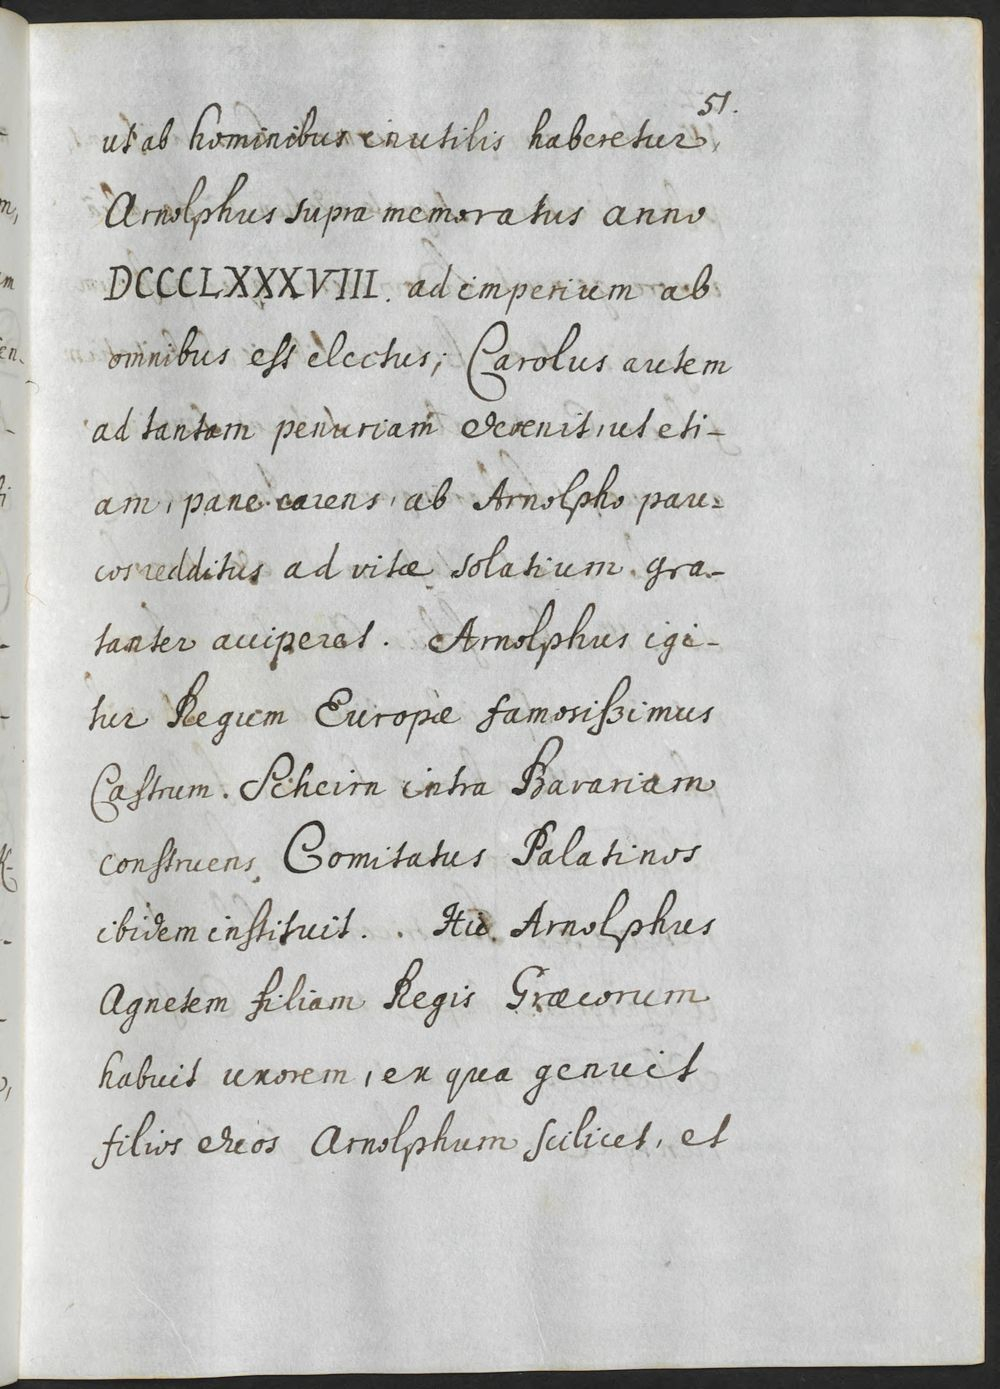 51.
ut ab hominibus inutilis haberetur,
Arnolphus supra memoratus anno
DCCCLXXXVIII. ad imperium ab
omnibus est electus; Carolus autem
ad tantam penuriam devenit, ut eti-
am, pane carens, ab Arnolpho pau-
cos redditus ad vitæ solatium gra-
tanter acciperet. Arnolphus igi-
tur Regum Europæ famosißimus
Castrum Scheirn intra Bavariam
construens, Comitatus Palatinos
ibidem instituit. . Hic Arnolphus
Agnetem filiam Regis Græcorum
habuit uxorem, ex qua genuit
filios duos Arnolphum scilicet, et